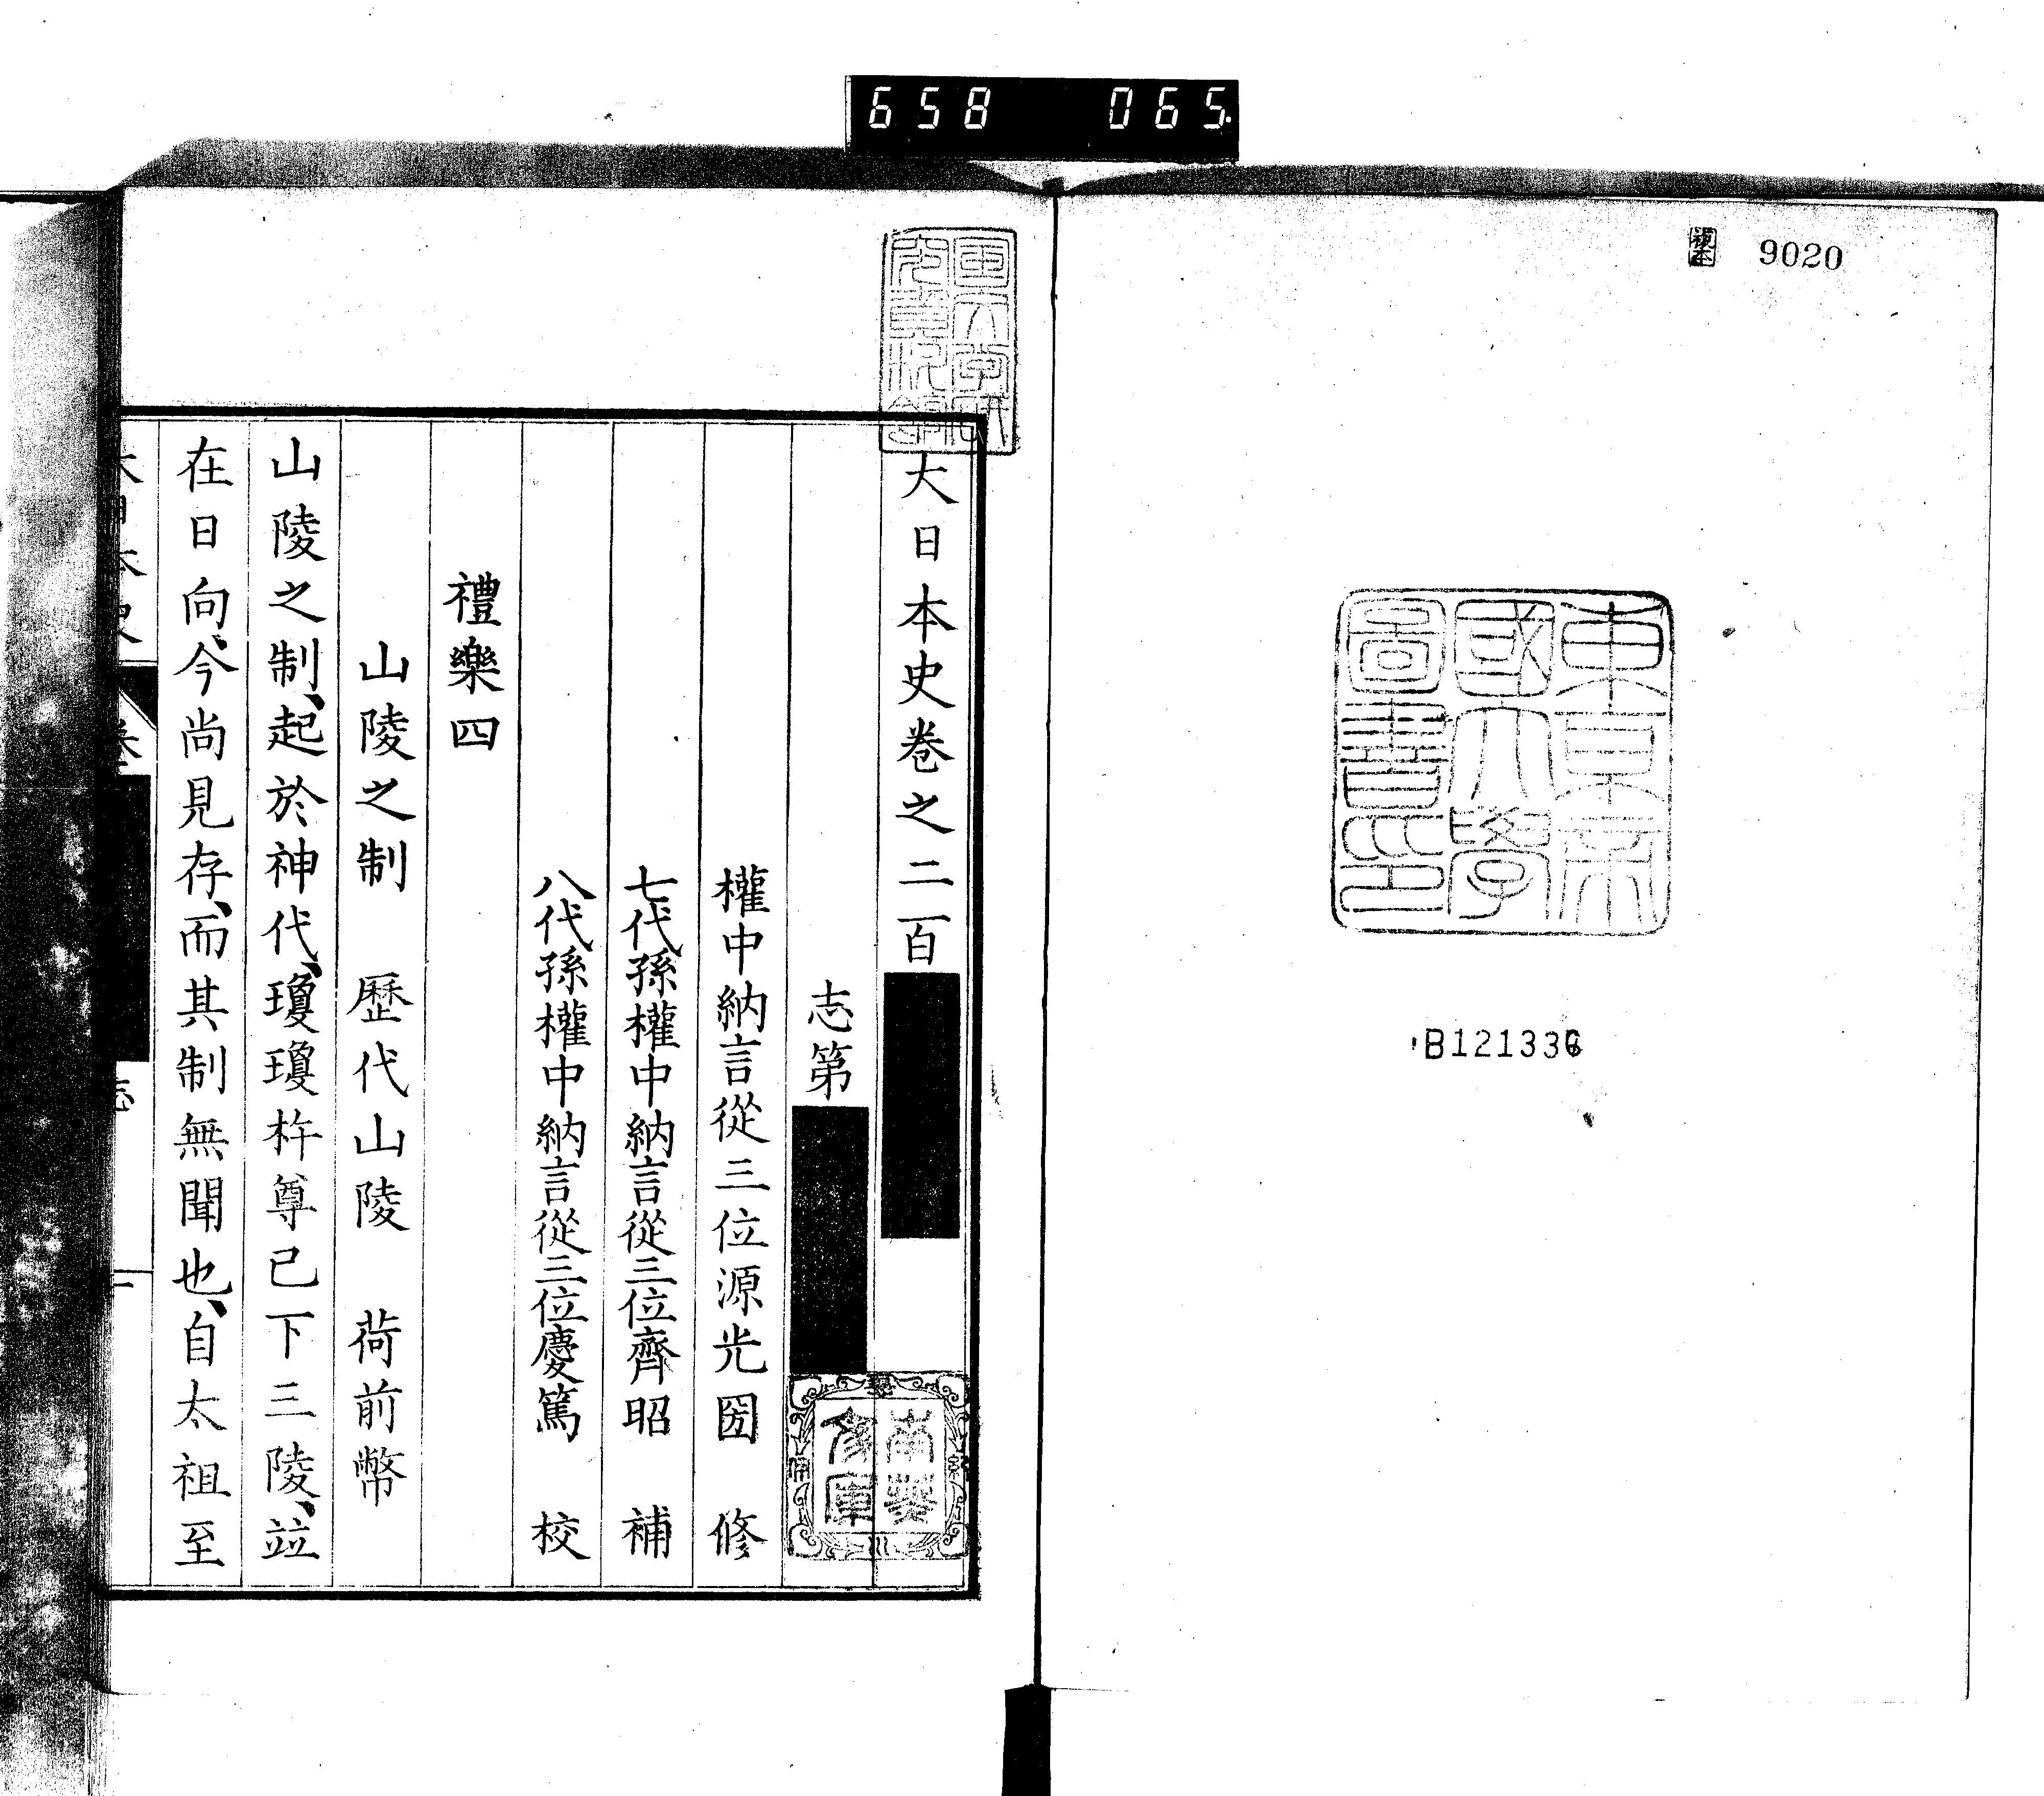 658 065
9020
東京帝
國大學
圖書印
B121336
大日本史卷之二百
志第
權中納言從三位源光圀 修
七代孫權中納言從三位齊昭 補
八代孫權中納言從三位慶篤 校
禮樂四
山陵之制 歷代山陵 荷前幣
山陵之制、起於神代、瓊瓊杵尊已下三陵、竝
在日向、今尚見存、而其制無聞也、自太祖至
南葵
文庫